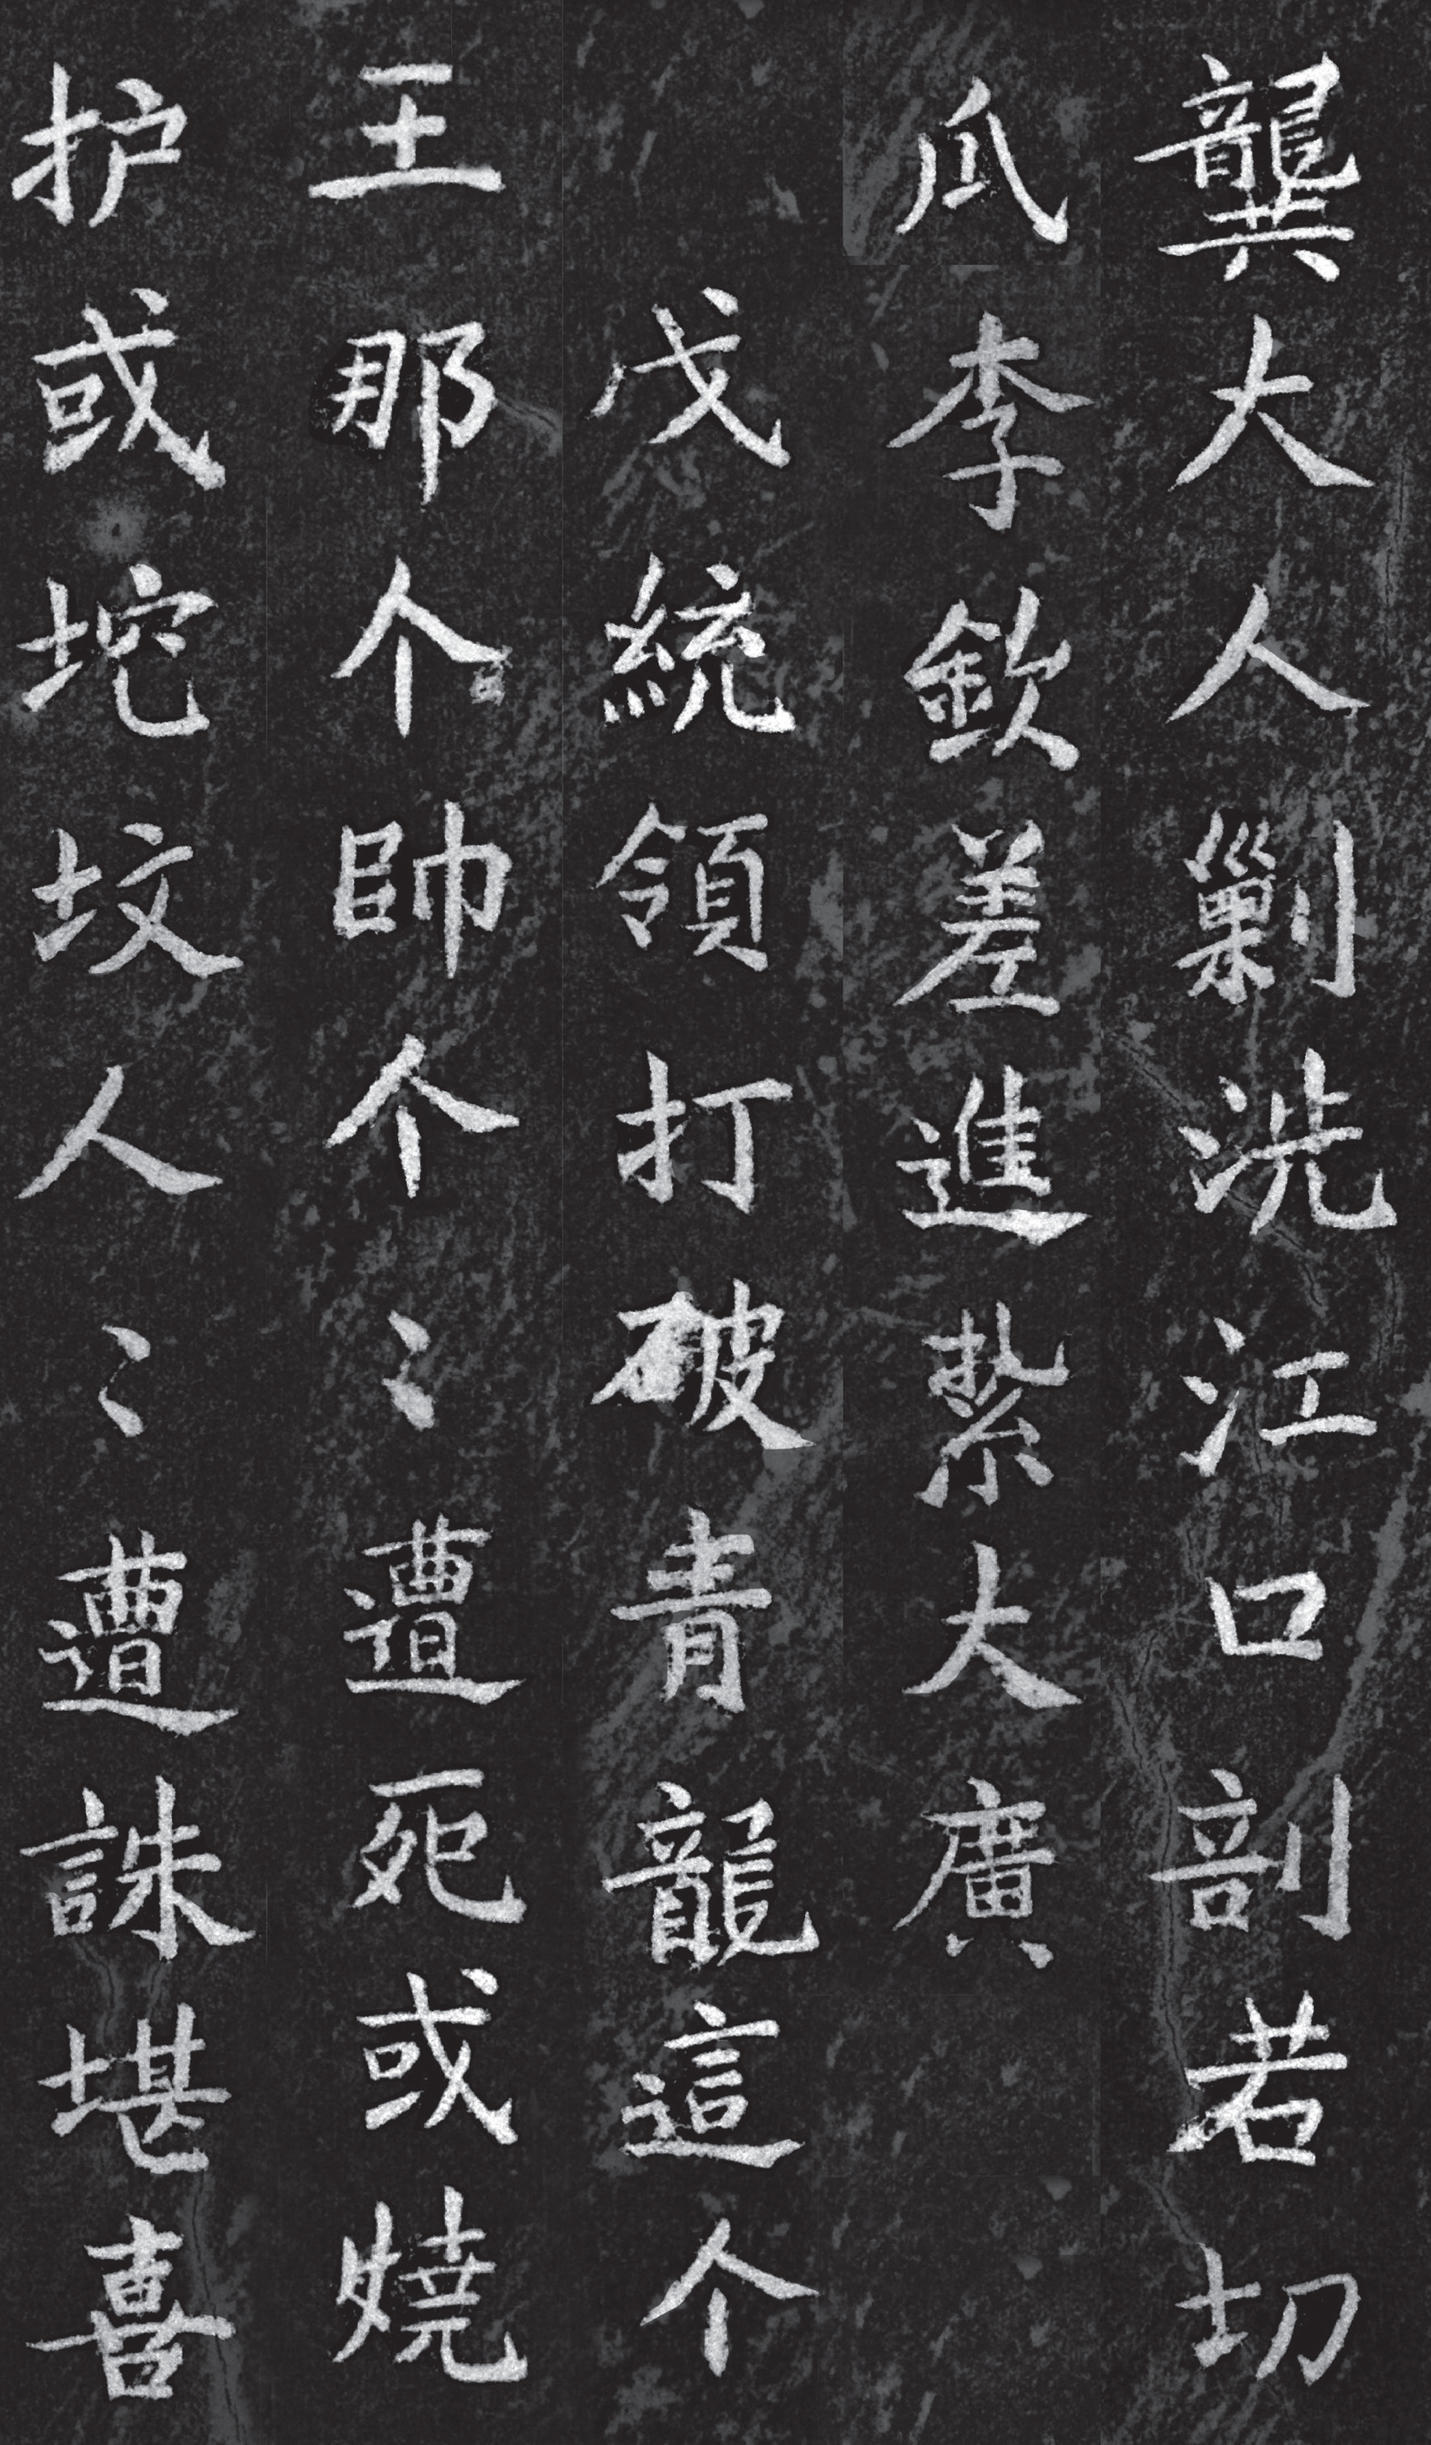 龔大人剿洗江口剖若切
瓜李欽差進紮大廣
戈統領打破青龍這个
王那个帥个〻遭死或燒
护或坨坟人〻遭誅堪喜